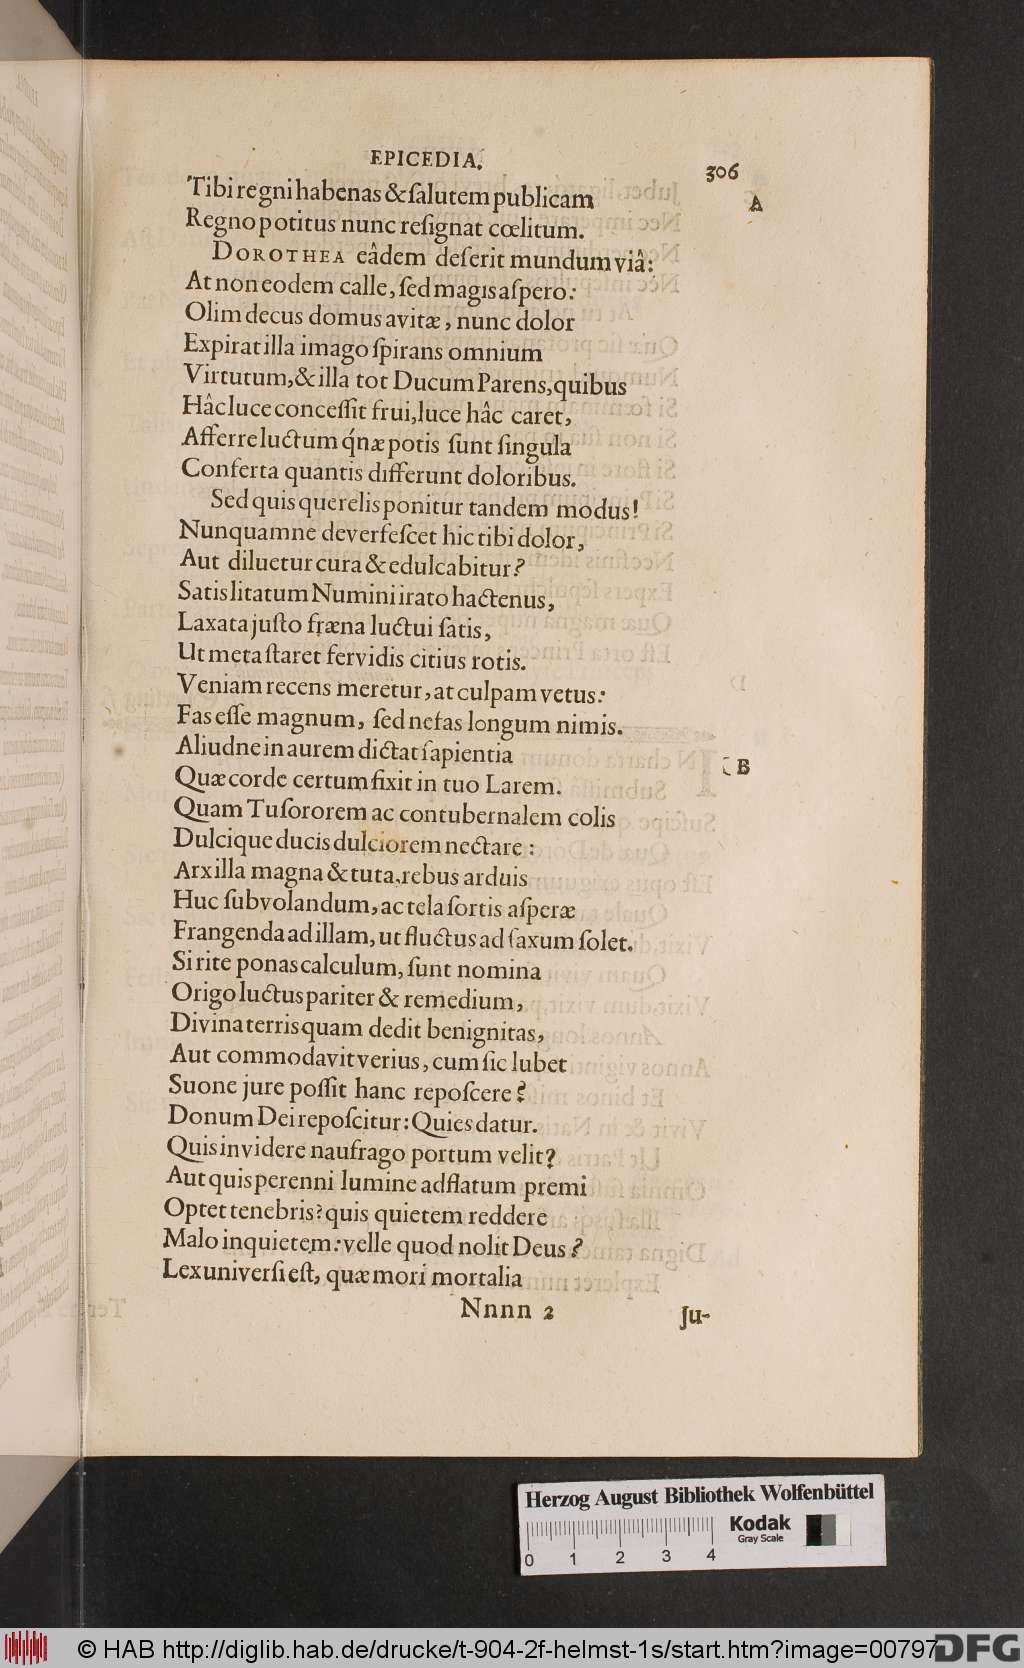 EPICEDIA.
306
Tibi regni habenas & ſalutem publicam
A
Regno potitus nunc reſignat cœlitum.
DOROTHEA eâdem deſerit mundum viâ:
At non eodem calle, ſed magis aſpero:
Olim decus domus avitæ, nunc dolor
Expirat illa imago ſpirans omnium
Virtutum, & illa tot Ducum Parens, quibus
Hâc luce conceſſit frui, luce hâc caret,
Afferre luctum q́næ potis ſunt ſingula
Conferta quantis differunt doloribus.
Sed quis querelis ponitur tandem modus!
Nunquamne deverfeſcet hic tibi dolor,
Aut diluetur cura & edulcabitur?
Satis litatum Numini irato hactenus,
Laxata juſto fræna luctui ſatis,
Ut meta ſtaret fervidis citius rotis.
Veniam recens meretur, at culpam vetus:
Fas eſſe magnum, ſed nefas longum nimis.
Aliudne in aurem dictat ſapientia
B
Quæ corde certum fixit in tuo Larem.
Quam Tu ſororem ac contubernalem colis
Dulcique ducis dulciorem nectare:
Arx illa magna & tuta, rebus arduis
Huc ſubvolandum, ac tela ſortis aſperæ
Frangenda ad illam, ut fluctus ad ſaxum ſolet.
Si rite ponas calculum, ſunt nomina
Origo luctus pariter & remedium,
Divina terris quam dedit benignitas,
Aut commodavit verius, cum ſic lubet
Suone jure poſſit hanc repoſcere?
Donum Dei repoſcitur: Quies datur.
Quis invidere naufrago portum velit?
Aut quis perenni lumine adflatum premi
Optet tenebris? quis quietem reddere
Malo inquietem: velle quod nolit Deus?
Lex univerſi eſt, quæ mori mortalia
Nnnn 2
ſu-
Herzog August Bibliothek Wolfenbüttel
Kodak
Gray Scale
0 1 2 3 4
© HAB http://diglib.hab.de/drucke/t-904-2f-helmst-1s/start.htm?image=00797
DFG